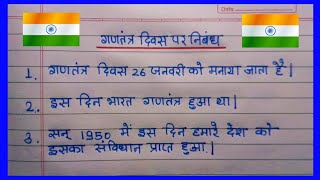 Date
गणतंत्र दिवस पर निबंध
1. गणतंत्र दिवस 26 जनवरी को मनाया जाता है।
2. इस दिन भारत गणतंत्र हुआ था।
3. सन् 1950 में इस दिन हमारे देश को
इसका संविधान प्राप्त हुआ।